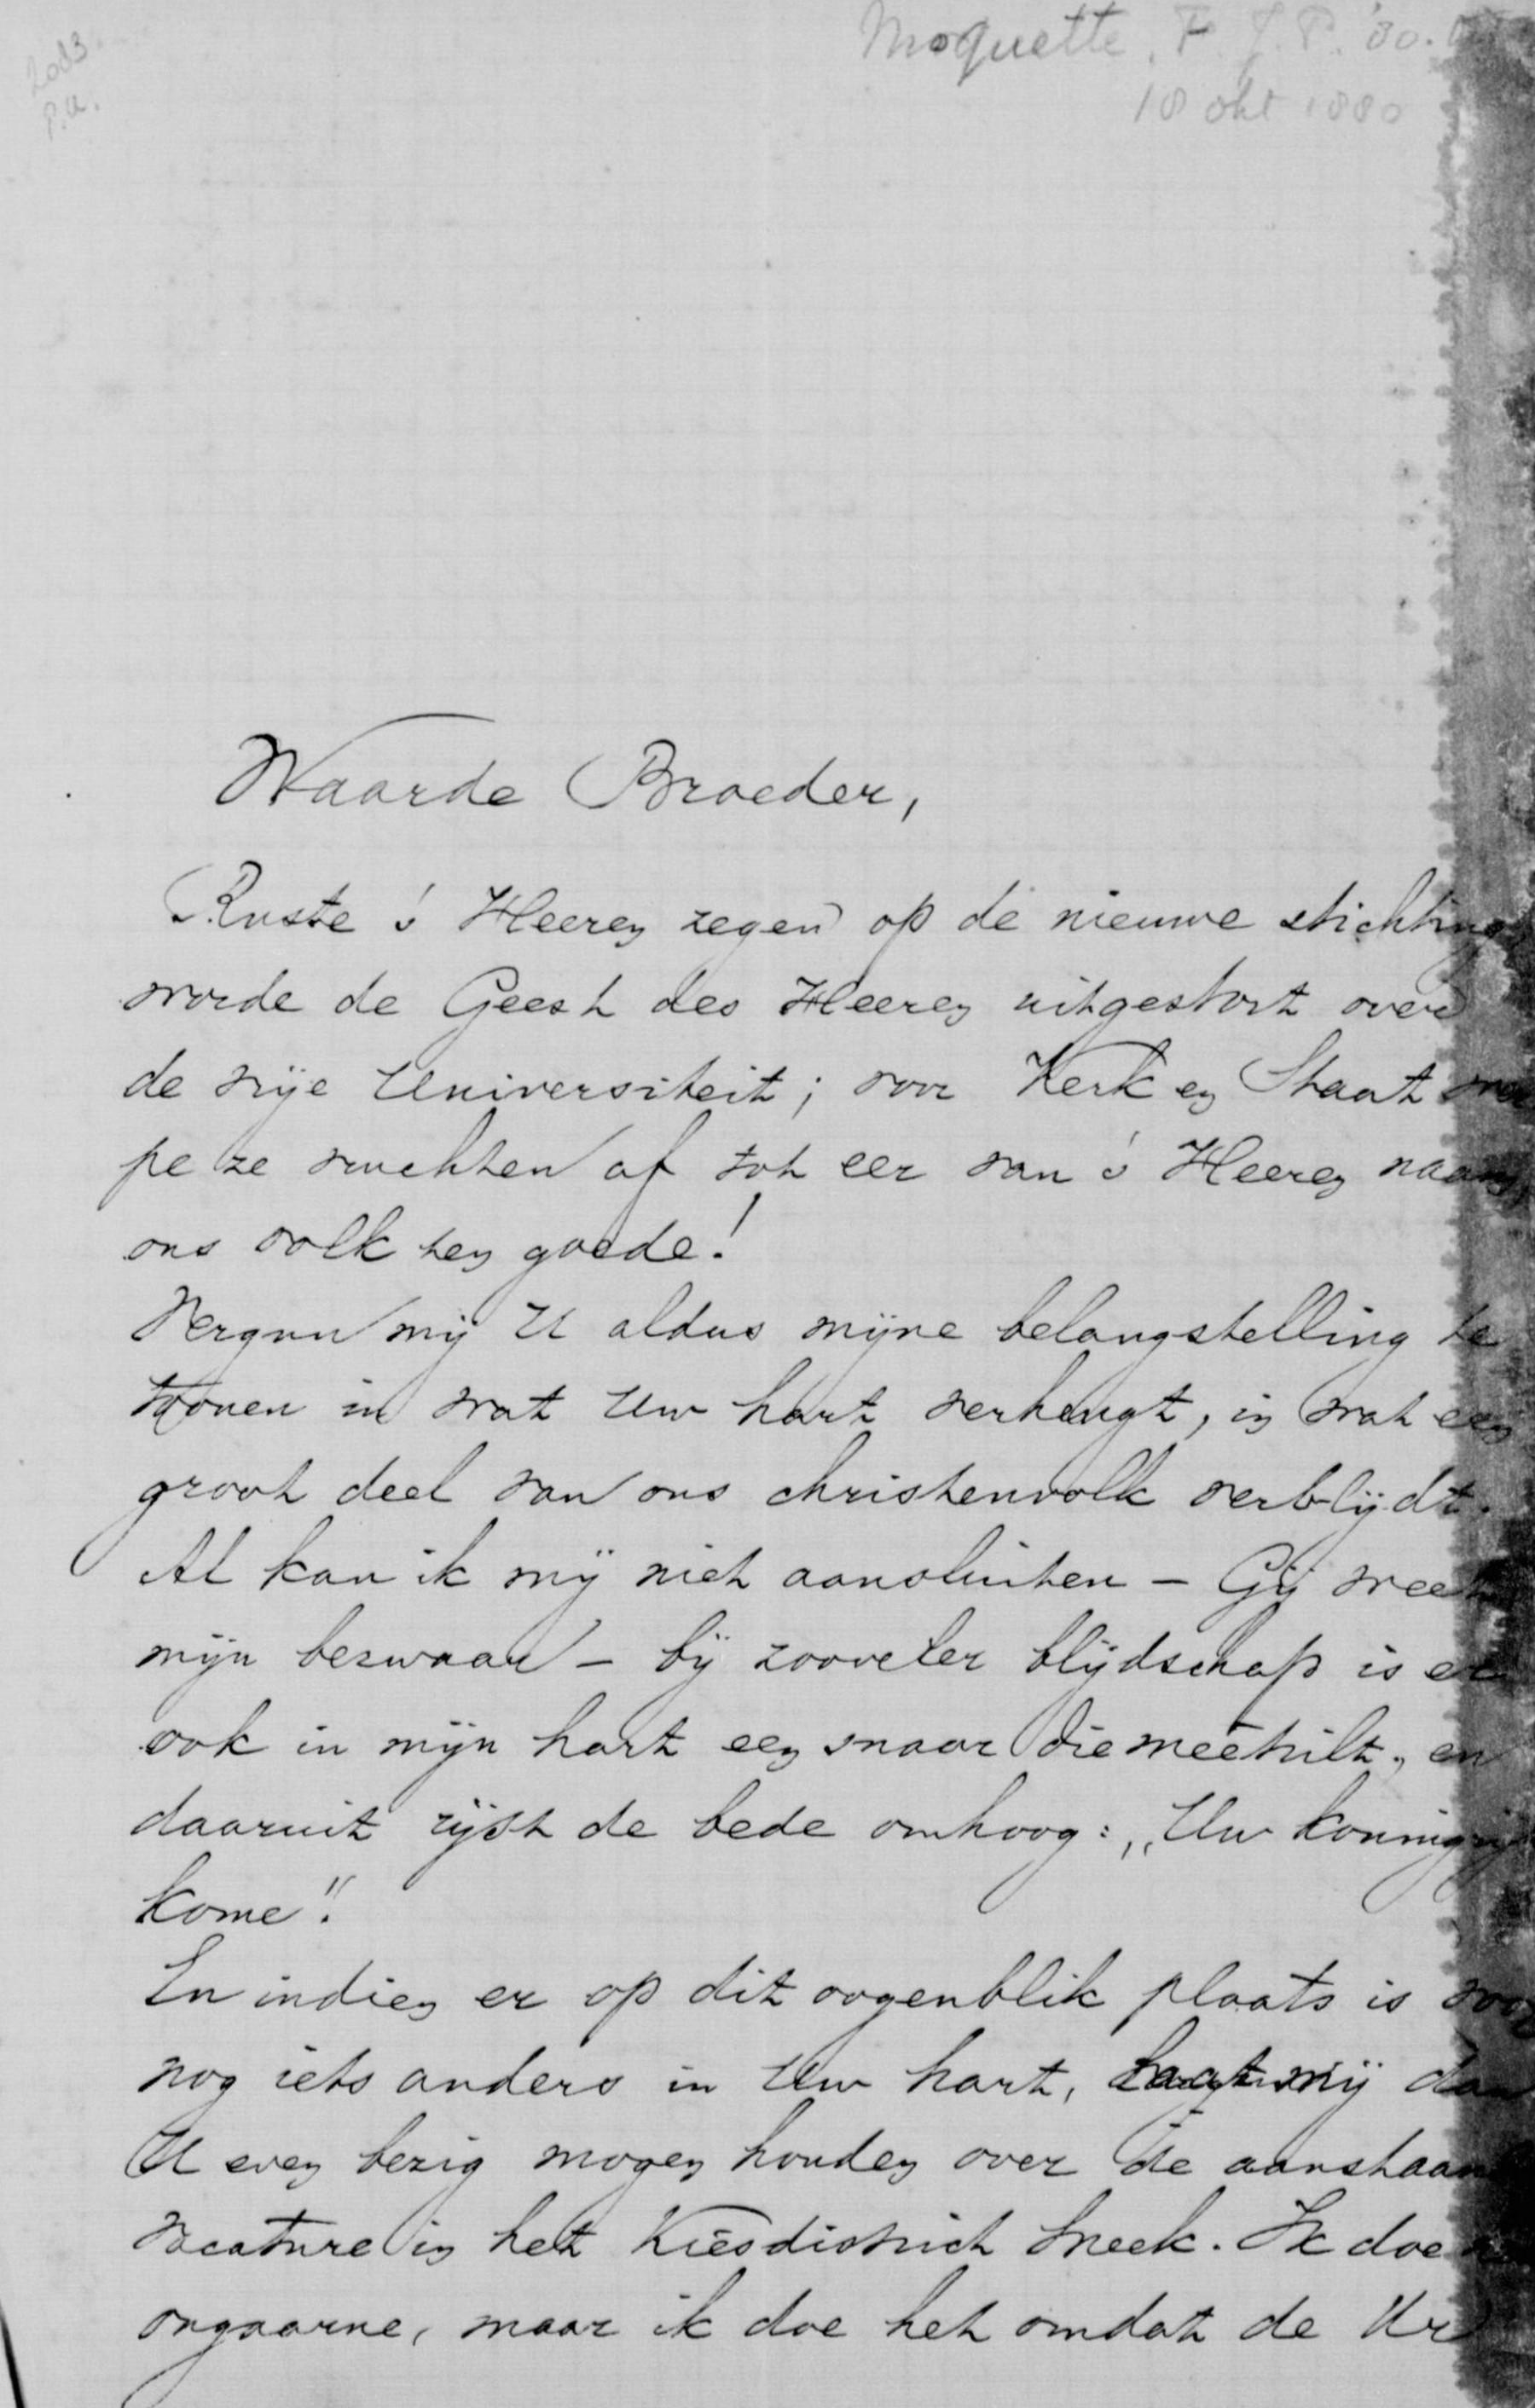 Moquette, F. J. P. '80.
18 okt 1880
2083
P.U.
Waarde Broeder,
Ruste 's Heeren zegen op de nieuwe stichting
worde de Geest des Heeren uitgestort over
de vrije Universiteit; voor Kerk en Staat wer
pe ze vruchten af tot eer van 's Heeren naam,
ons volk ten goede!
Vergun mij U aldus mijne belangstelling te
toonen in wat Uw hart verheugt, in wat een
groot deel van ons christenvolk verblijdt.
Al kan ik mij niet aansluiten – Gij weet
mijn bezwaar – bij zooveler blijdschap is er
ook in mijn hart een snaar die meêtrilt, en
daaruit rijst de bede omhoog: „Uw koningrijk
kome"!
En indien er op dit oogenblik plaats is voor
nog iets anders in Uw hart, laat mij dan
U even bezig mogen houden over de aanstaan
vacature in het Kiesdistrict Sneek. Ik doe
ongaarne, maar ik doe het omdat de Ur